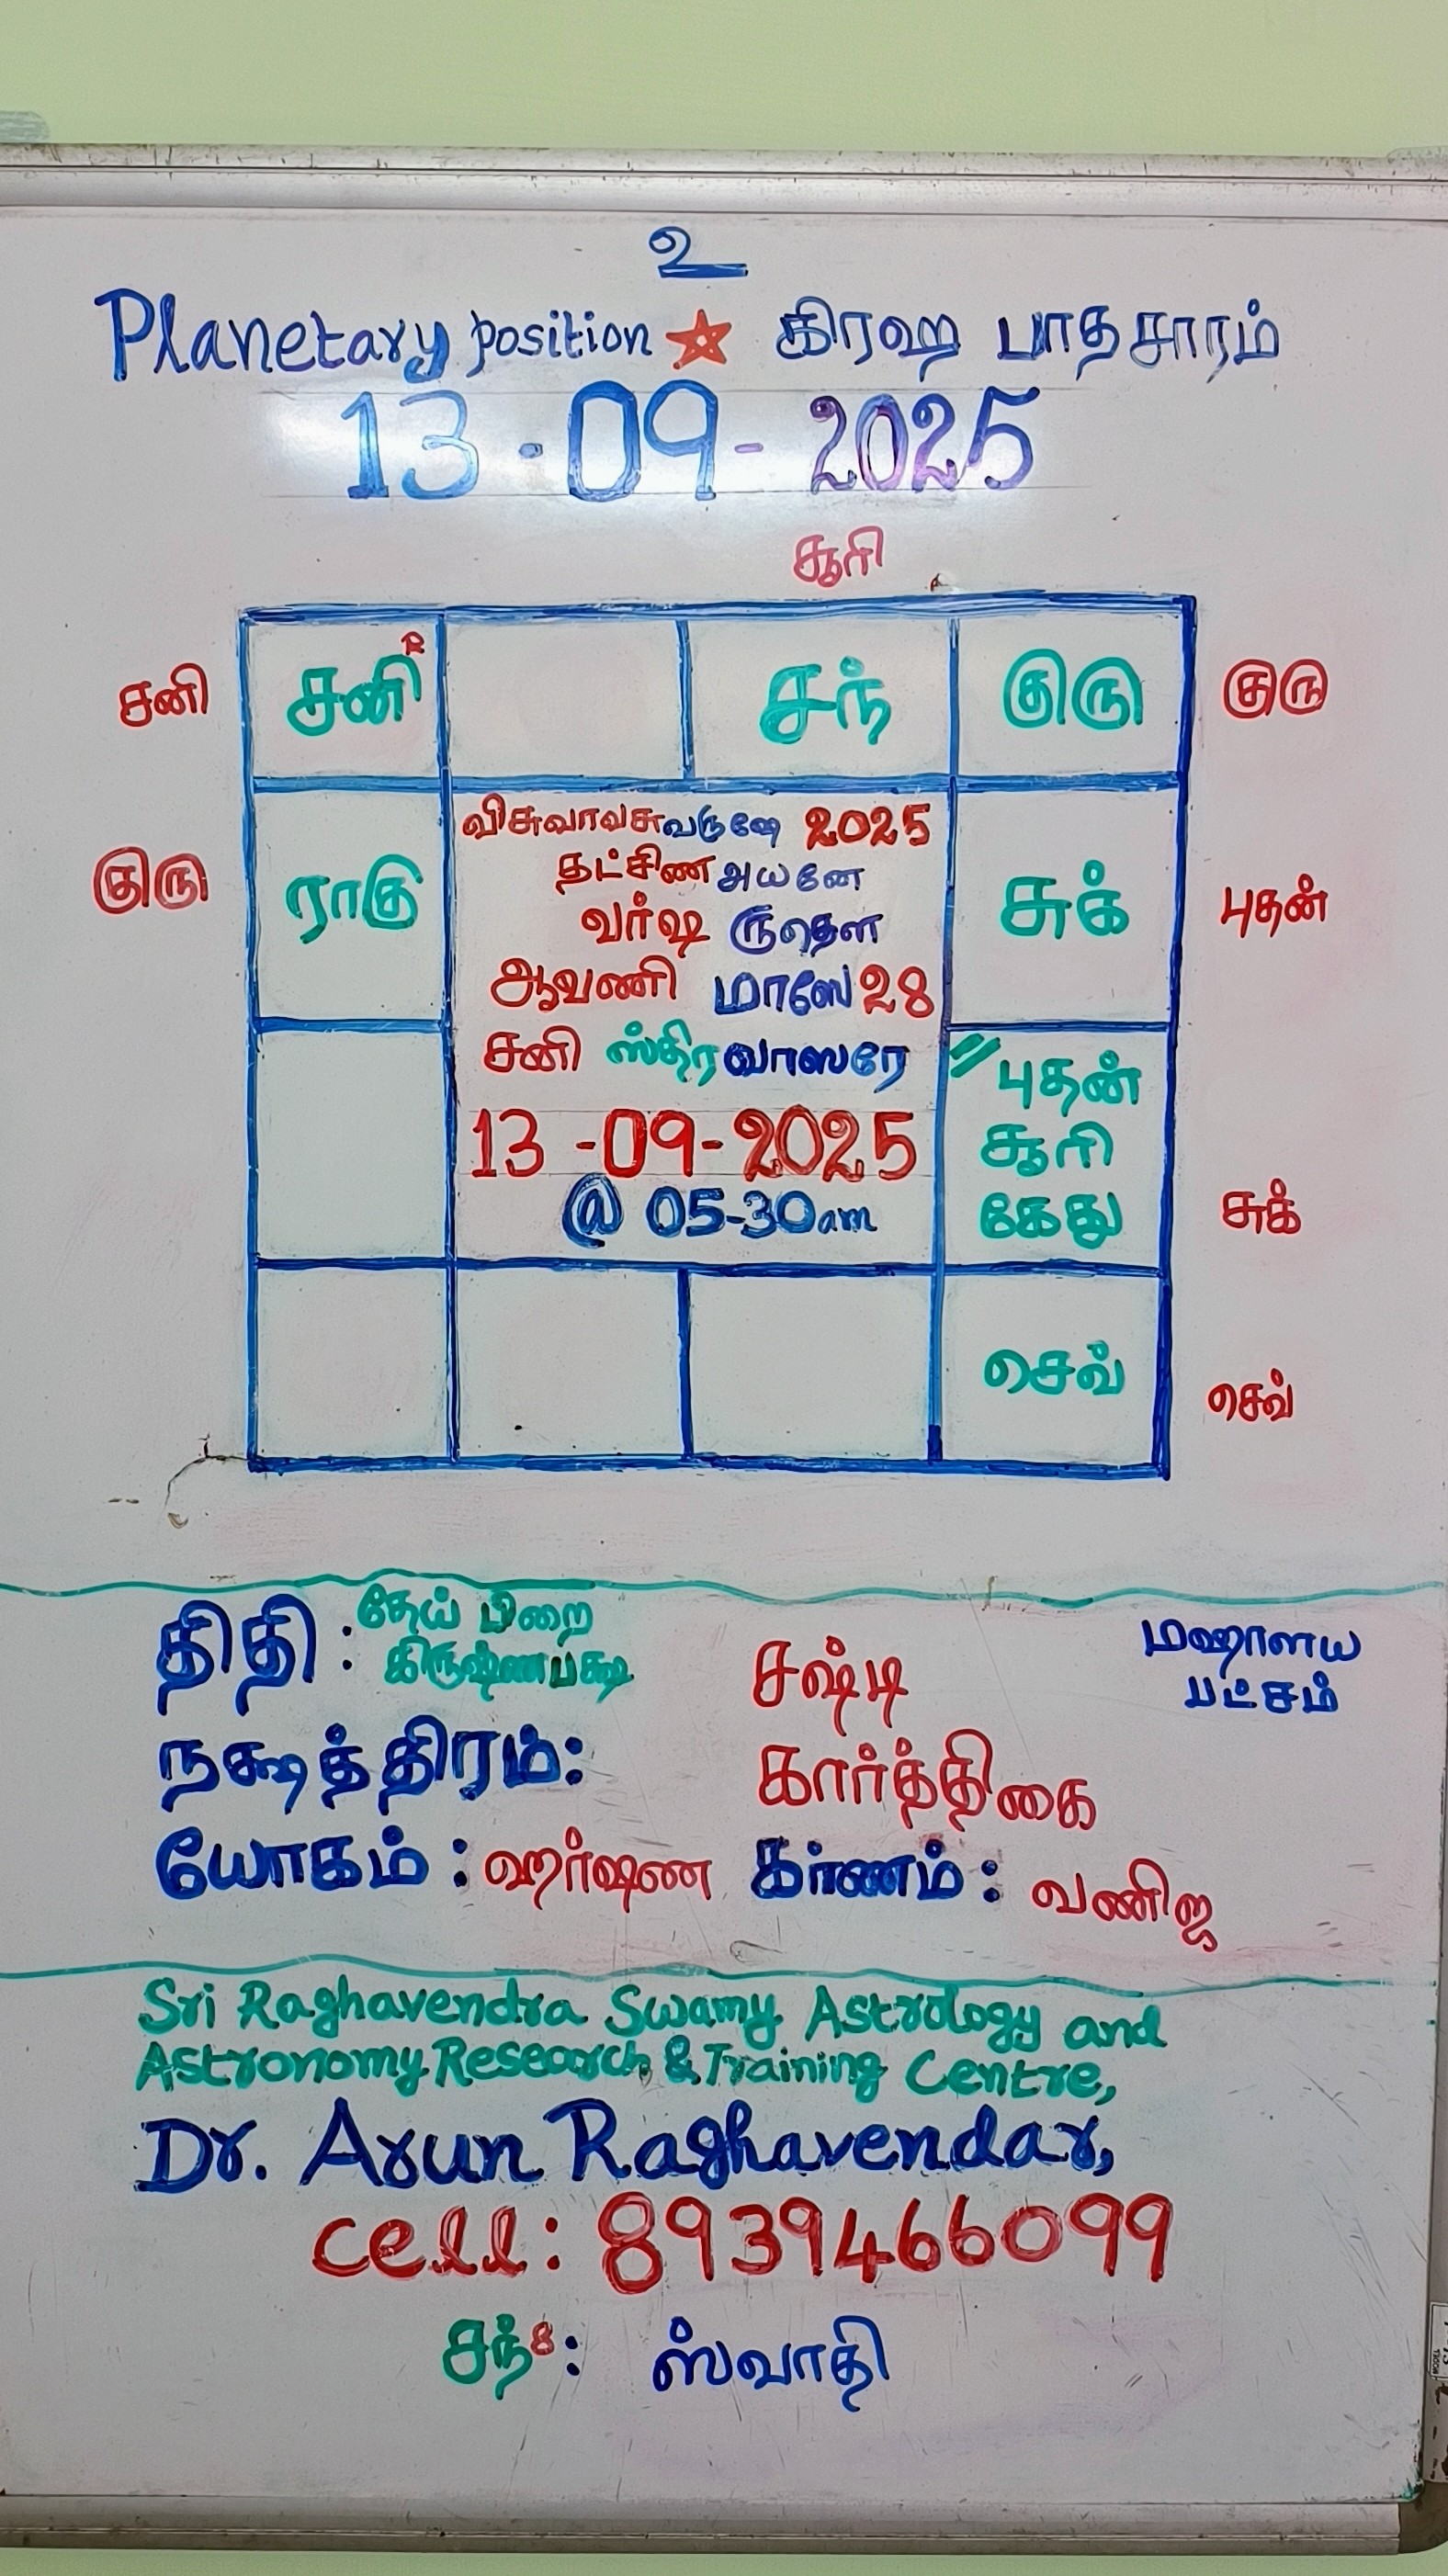 உ
Planetary position ★ கிரஹ பாதசாரம்
13-09-2025
சூரி
சனி சனி R சந் குரு குரு
விசுவாவசுவருஷே 2025
தட்சிண அயனே
குரு ராகு வர்ஷ ருதௌ சுக் புதன்
ஆவணி மாஸே 28
சனி ஸ்திர வாஸரே
〃 புதன்
சூரி
கேது சுக்
13-09-2025
@ 05-30am
செவ் செவ்
திதி : தேய் பிறை
கிருஷ்ணபக்ஷ சஷ்டி மஹாளய
பட்சம்
நக்ஷத்திரம்: கார்த்திகை
யோகம் : ஹர்ஷண கர்ணம் : வணிஜ
Sri Raghavendra Swamy Astrology and
Astronomy Research & Training Centre,
Dr. Arun Raghavendar,
cell: 8939466099
சந்8: ஸ்வாதி